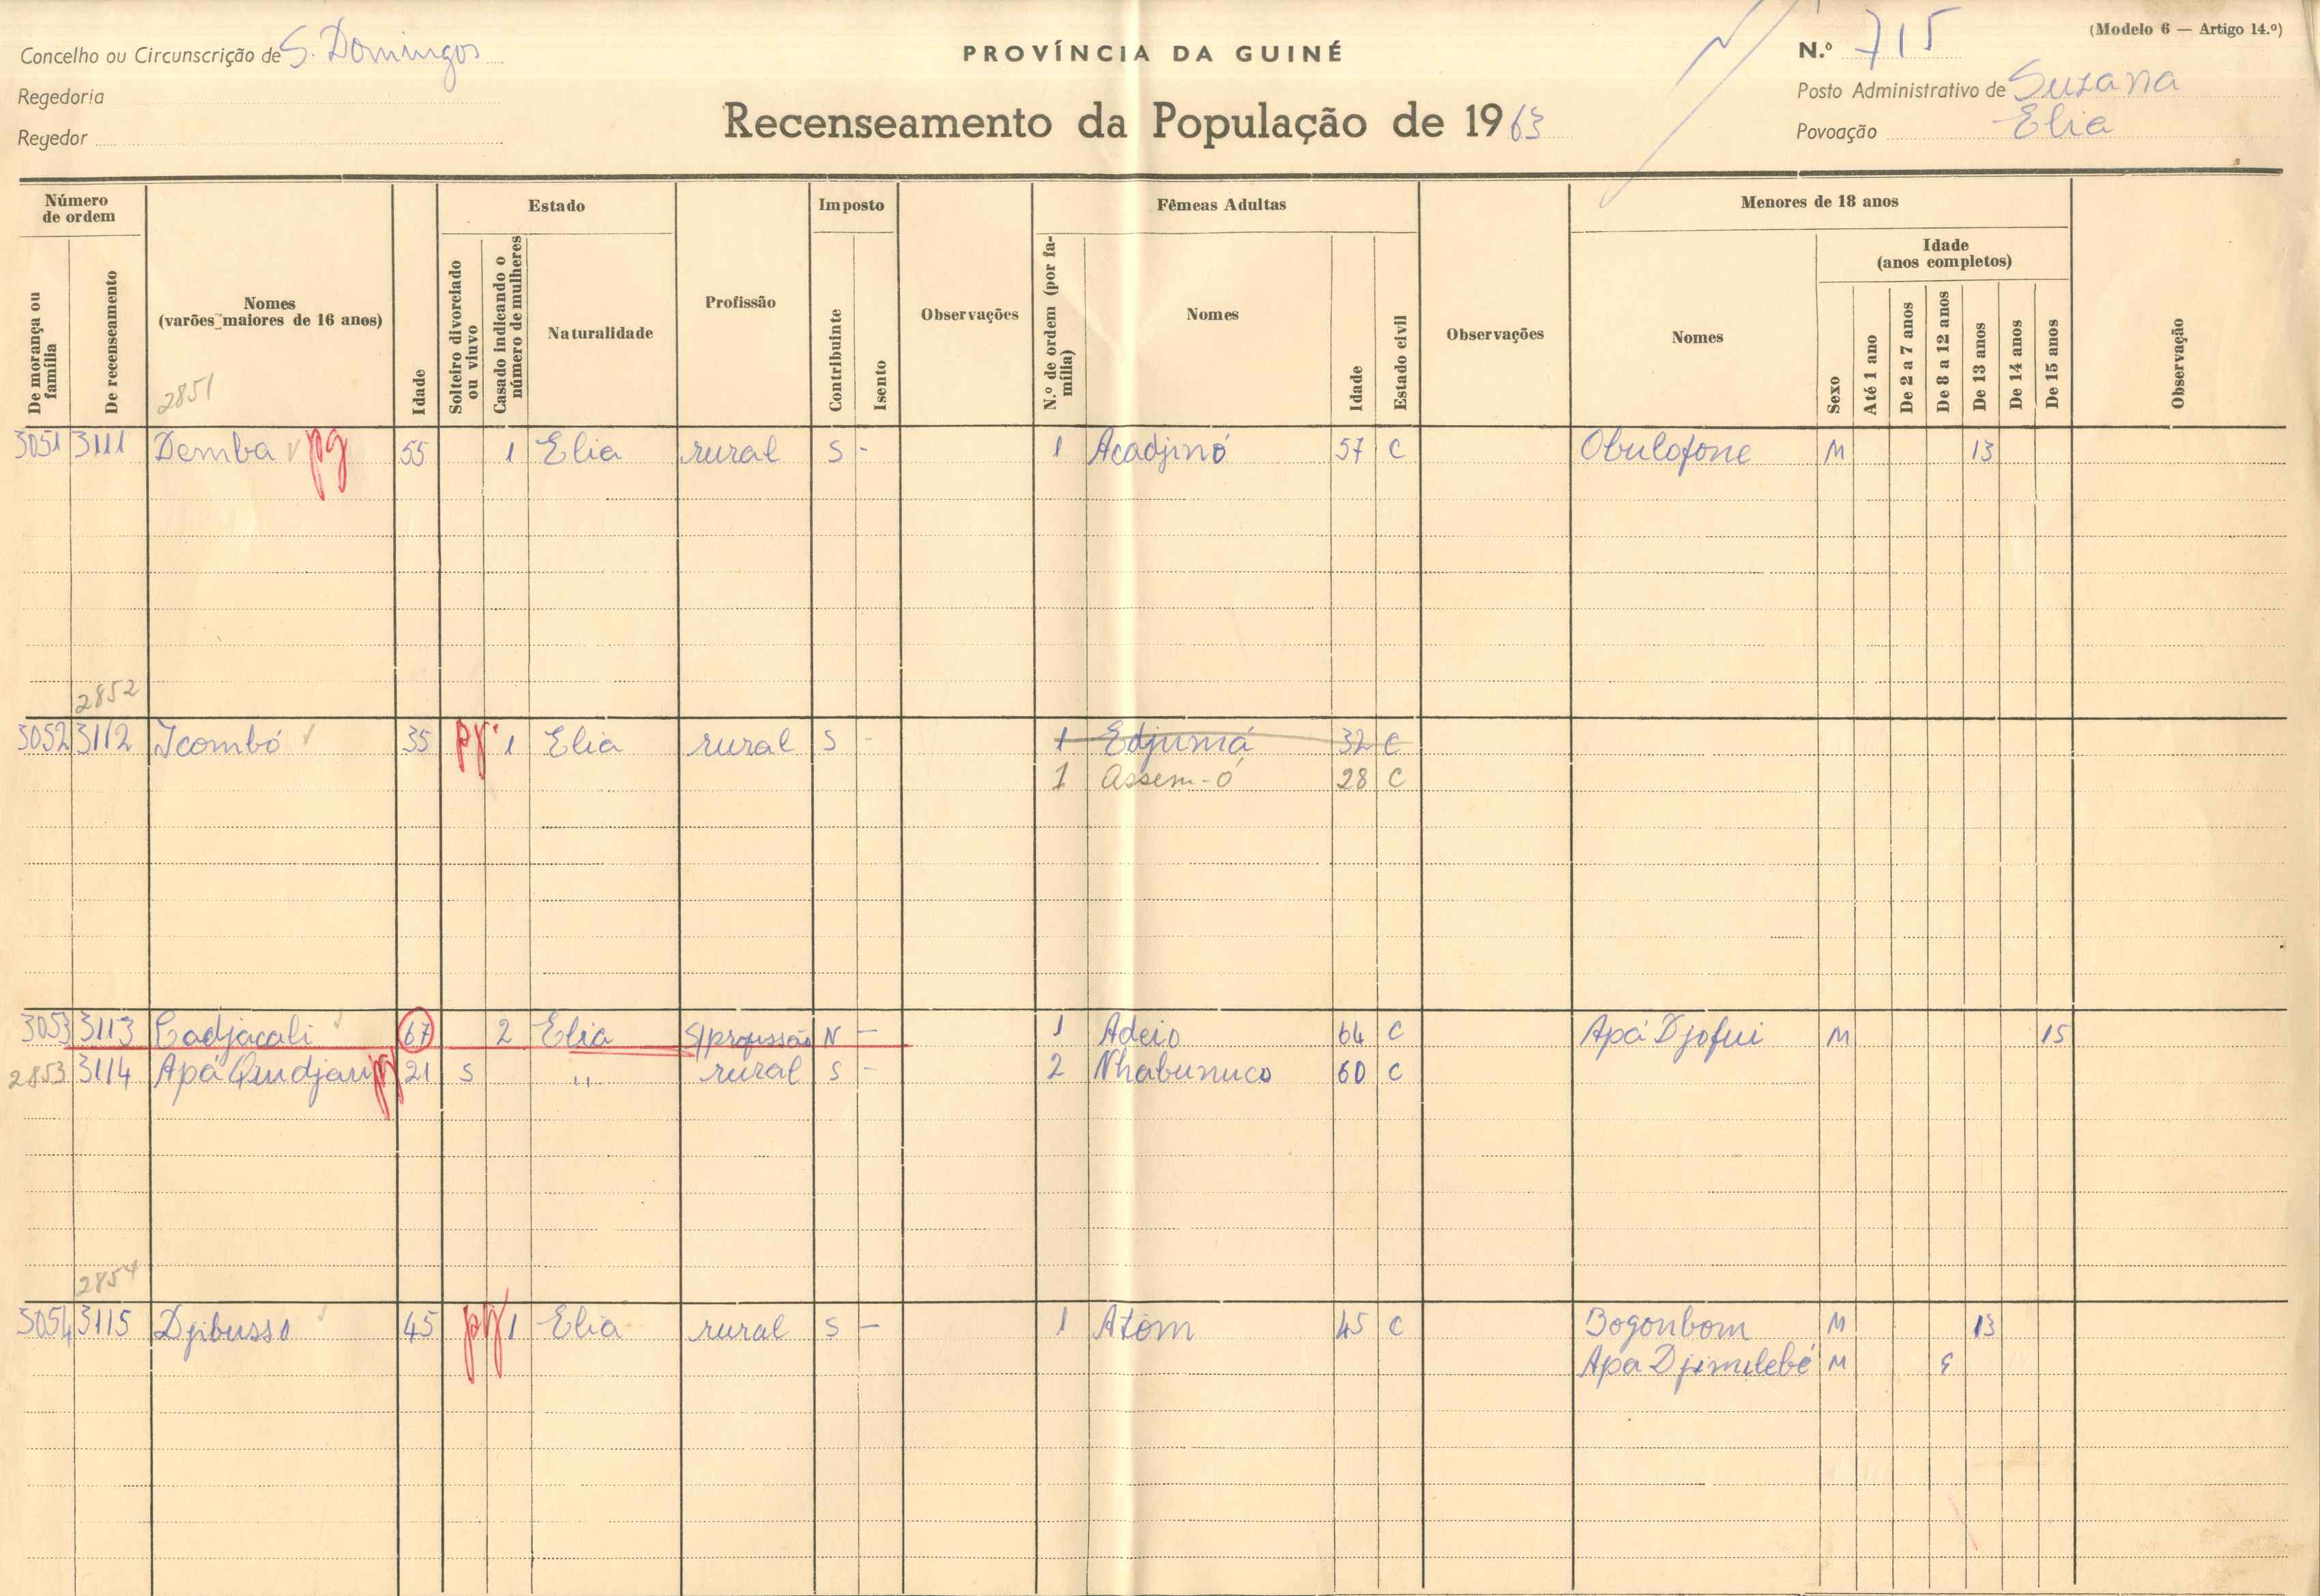 (Modelo 6 — Artigo 14.º)
Concelho ou Circunscrição de S. Domingos
PROVÍNCIA DA GUINÉ
N.º 715
Regedoria
Posto Administrativo de Suzana
Recenseamento da População de 1963
Regedor
Povoação Elia
Número de ordem
Estado
Imposto
Fêmeas Adultas
Menores de 18 anos
De morança ou família
De recenseamento
Nomes (varões maiores de 16 anos)
Idade
Solteiro divorciado ou viuvo
Casado indicando o número de mulheres
Naturalidade
Profissão
Contribuinte
Isento
Observações
N.º de ordem (por família)
Nomes
Idade
Estado civil
Observações
Nomes
Sexo
Idade (anos completos)
Até 1 ano
De 2 a 7 anos
De 8 a 12 anos
De 13 anos
De 14 anos
De 15 anos
Observação
2851
3051 3111 Demba pg 55 1 Elia rural S - 1 Acadjinó 57 C Obulofone M 13
2852
3052 3112 Icombó 35 pg 1 Elia rural S - 1 Edjumá 32 C
1 Assem-ó 28 C
3053 3113 Cadjacali 67 2 Elia S/profissão N — 1 Adeio 64 C Apá Djofui M 15
2853 3114 Apá Qudjau pg 21 S " rural S - 2 Nhabunuco 60 C
2854
3054 3115 Djibusso 45 pg 1 Elia rural S — 1 Atom 45 C Bogonbom M 13
Apa Djimelebé M 9